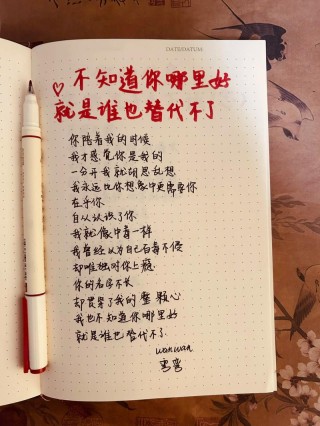 DATE/DATUM
♡不知道你哪里好
就是谁也替代不了
你陪着我的时候
我才感觉你是我的
一分开我就胡思乱想
我永远比你想象中更需要你
在乎你
自从认识了你
我就像中毒一样
我曾经以为自己百毒不侵
却唯独对你上瘾
你的名字不长
却贯累了我的整颗心
我也不知道你哪里好
就是谁也替代不了
wanwan
弯弯